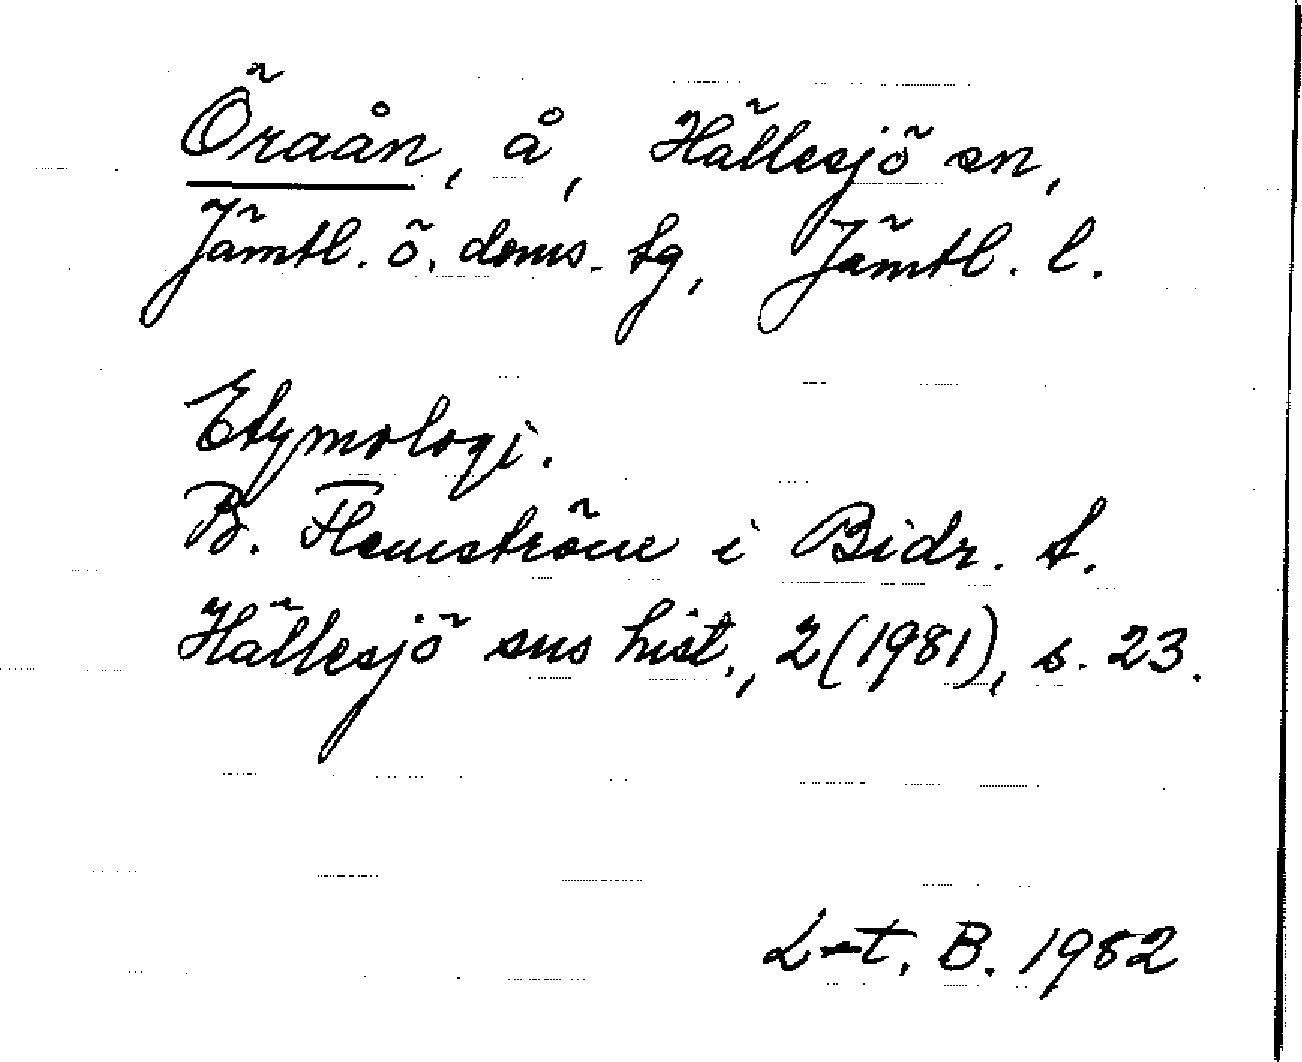 Öraån, å, Hällesjö sn,
Jämtl. ö. doms. tg, Jämtl. l.
Etymologi.
B. Flemström i Bidr. t.
Hällesjö sns hist., 2(1981), s. 23.
L-t. B. 1982